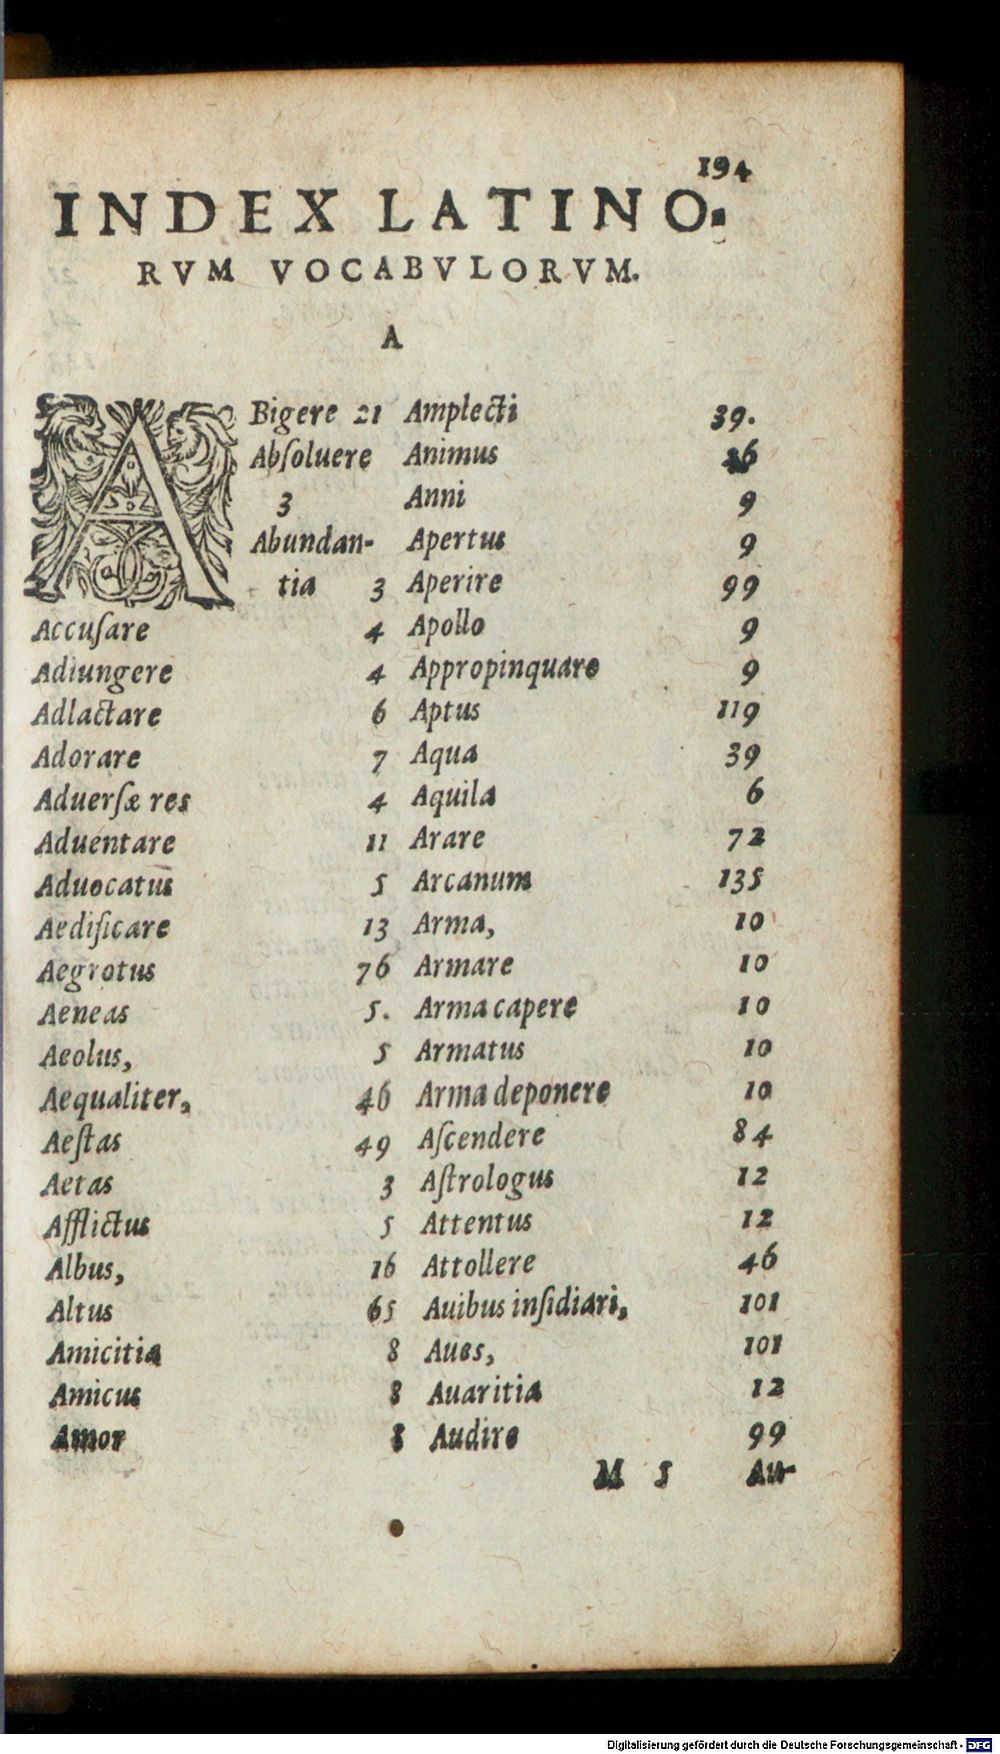 194
INDEX LATINO-
RVM VOCABVLORVM.
A
ABigere 21
Abſoluere
3
Abundan-
tia 3
Accuſare 4
Adiungere 4
Adlactare 6
Adorare 7
Aduerſæ res 4
Aduentare 11
Aduocatus 5
Aedificare 13
Aegrotus 76
Aeneas 5.
Aeolus, 5
Aequaliter, 46
Aeſtas 49
Aetas 3
Afflictus 5
Albus, 16
Altus 65
Amicitia 8
Amicus 8
Amor 8
Amplecti 39.
Animus
Anni 9
Apertus 9
Aperire 99
Apollo 9
Appropinquare 9
Aptus 119
Aqua 39
Aquila 6
Arare 72
Arcanum 135
Arma, 10
Armare 10
Arma capere 10
Armatus 10
Arma deponere 10
Aſcendere 84
Aſtrologus 12
Attentus 12
Attollere 46
Auibus inſidiari, 101
Aues, 101
Auaritia 12
Audire 99
M 5 Au-
Digitalisierung gefördert durch die Deutsche Forschungsgemeinschaft - DFG